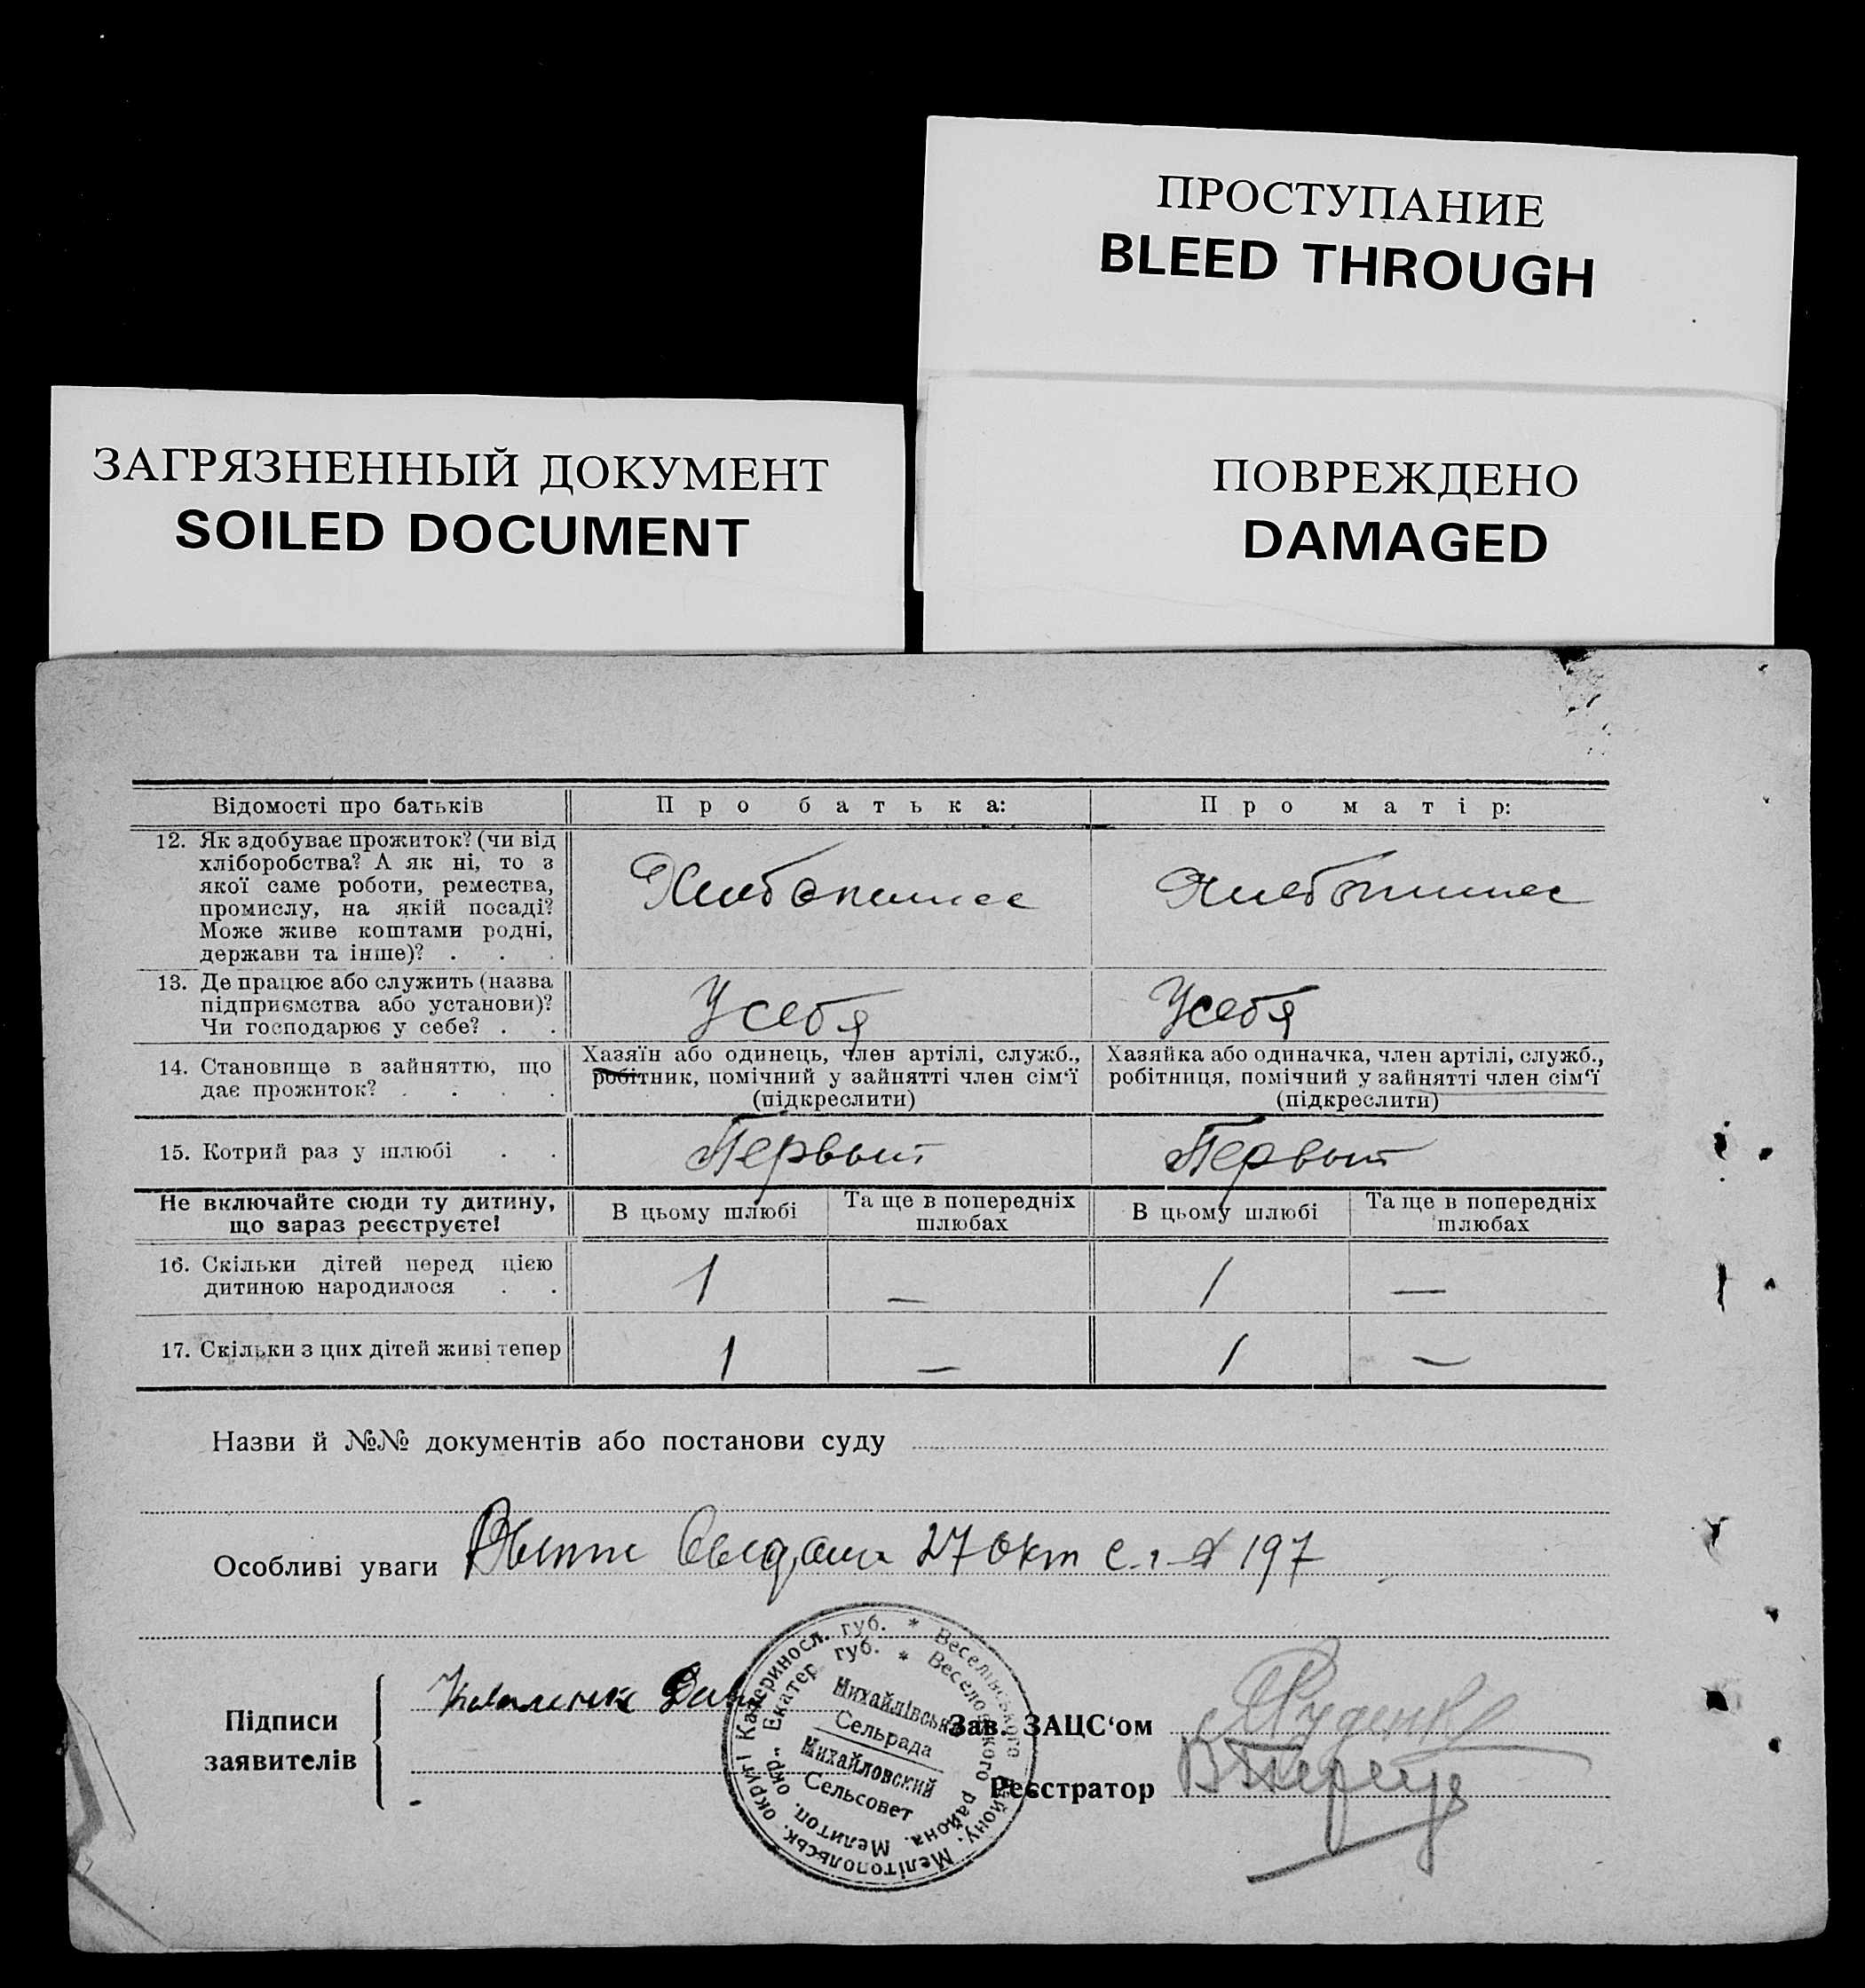 ПРОСТУПАНИЕ
BLEED THROUGH
ЗАГРЯЗНЕННЫЙ ДОКУМЕНТ
SOILED DOCUMENT
ПОВРЕЖДЕНО
DAMAGED
Відомості про батьків
Про батька:
Про матір:
12. Як здобуває прожиток? (чи від
хліборобства? А як ні, то з
якої саме роботи, ремества,
промислу, на якій посаді?
Може живе коштами родні,
держави та інше)? . . .
13. Де працює або служить (назва
підприємства або установи)?
Чи господарює у себе? . .
У себя
У себя
14. Становище в зайняттю, що
дає прожиток? . . . .
Хазяїн або одинець, член артілі, служб.,
робітник, помічний у зайнятті член сім'ї
(підкреслити)
Хазяйка або одиначка, член артілі, служб.,
робітниця, помічний у зайнятті член сім'ї
(підкреслити)
15. Котрий раз у шлюбі . .
Первый
Первый
Не включайте сюди ту дитину,
що зараз реєструєте!
В цьому шлюбі
Та ще в попередніх
шлюбах
В цьому шлюбі
Та ще в попередніх
шлюбах
16. Скільки дітей перед цією
дитиною народилося . .
1
—
1
—
17. Скільки з цих дітей живі тепер
1
—
1
—
Назви й №№ документів або постанови суду
Особливі уваги 27 окт с. г. 197
Підписи
заявителів
Катериносл. губ. * Веселівського району, Мелітопольськ. округі
Екатер. губ. * Веселовского района. Мелитоп. окр.
Михайлівська
Сельрада
Михайловский
Сельсовет
Зав. ЗАЦС'ом Руденко
Реєстратор